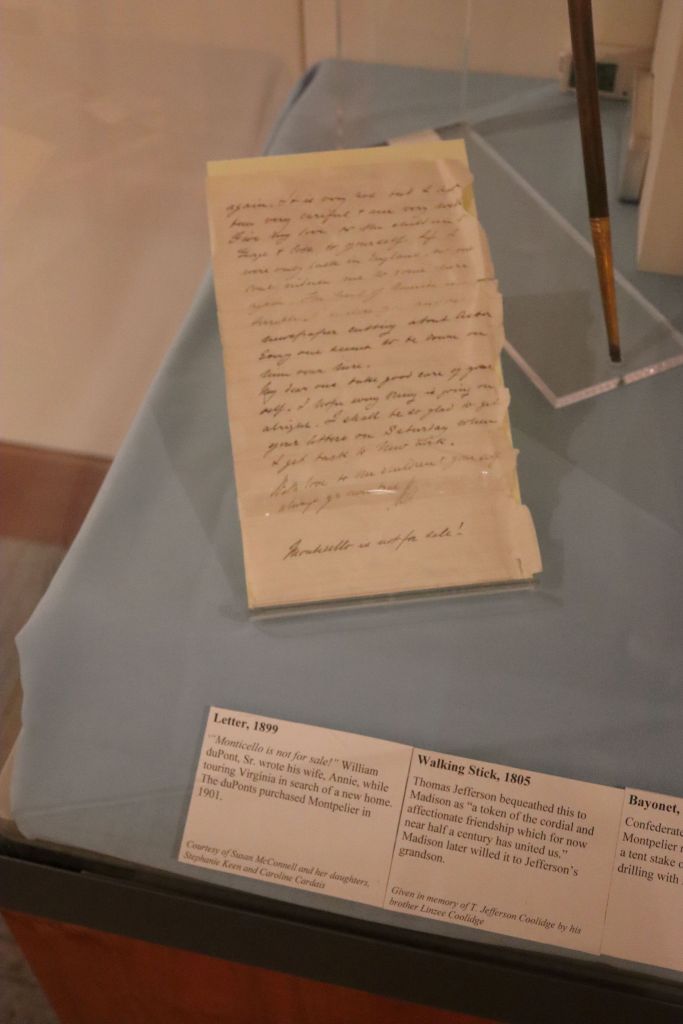 again. It is very
been very careful
Give my love to the children
love to yourself. If I
were only back in England
newspaper cutting about
Every one seems to be down on
him over here.
My dear one take good care of your
self. I hope every thing is going on
alright. I shall be so glad to get
your letters on Saturday when
I get back to New York.
With love to the children & yourself
always
Monticello is not for sale!
Letter, 1899
"Monticello is not for sale!" William
duPont, Sr. wrote his wife, Annie, while
touring Virginia in search of a new home.
The duPonts purchased Montpelier in
1901.
Courtesy of Susan McConnell and her daughters,
Stephanie Keen and Caroline Cardais
Walking Stick, 1805
Thomas Jefferson bequeathed this to
Madison as "a token of the cordial and
affectionate friendship which for now
near half a century has united us."
Madison later willed it to Jefferson's
grandson.
Given in memory of T. Jefferson Coolidge by his
brother Linzee Coolidge
Bayonet,
Confederate
Montpelier
a tent stake
drilling with